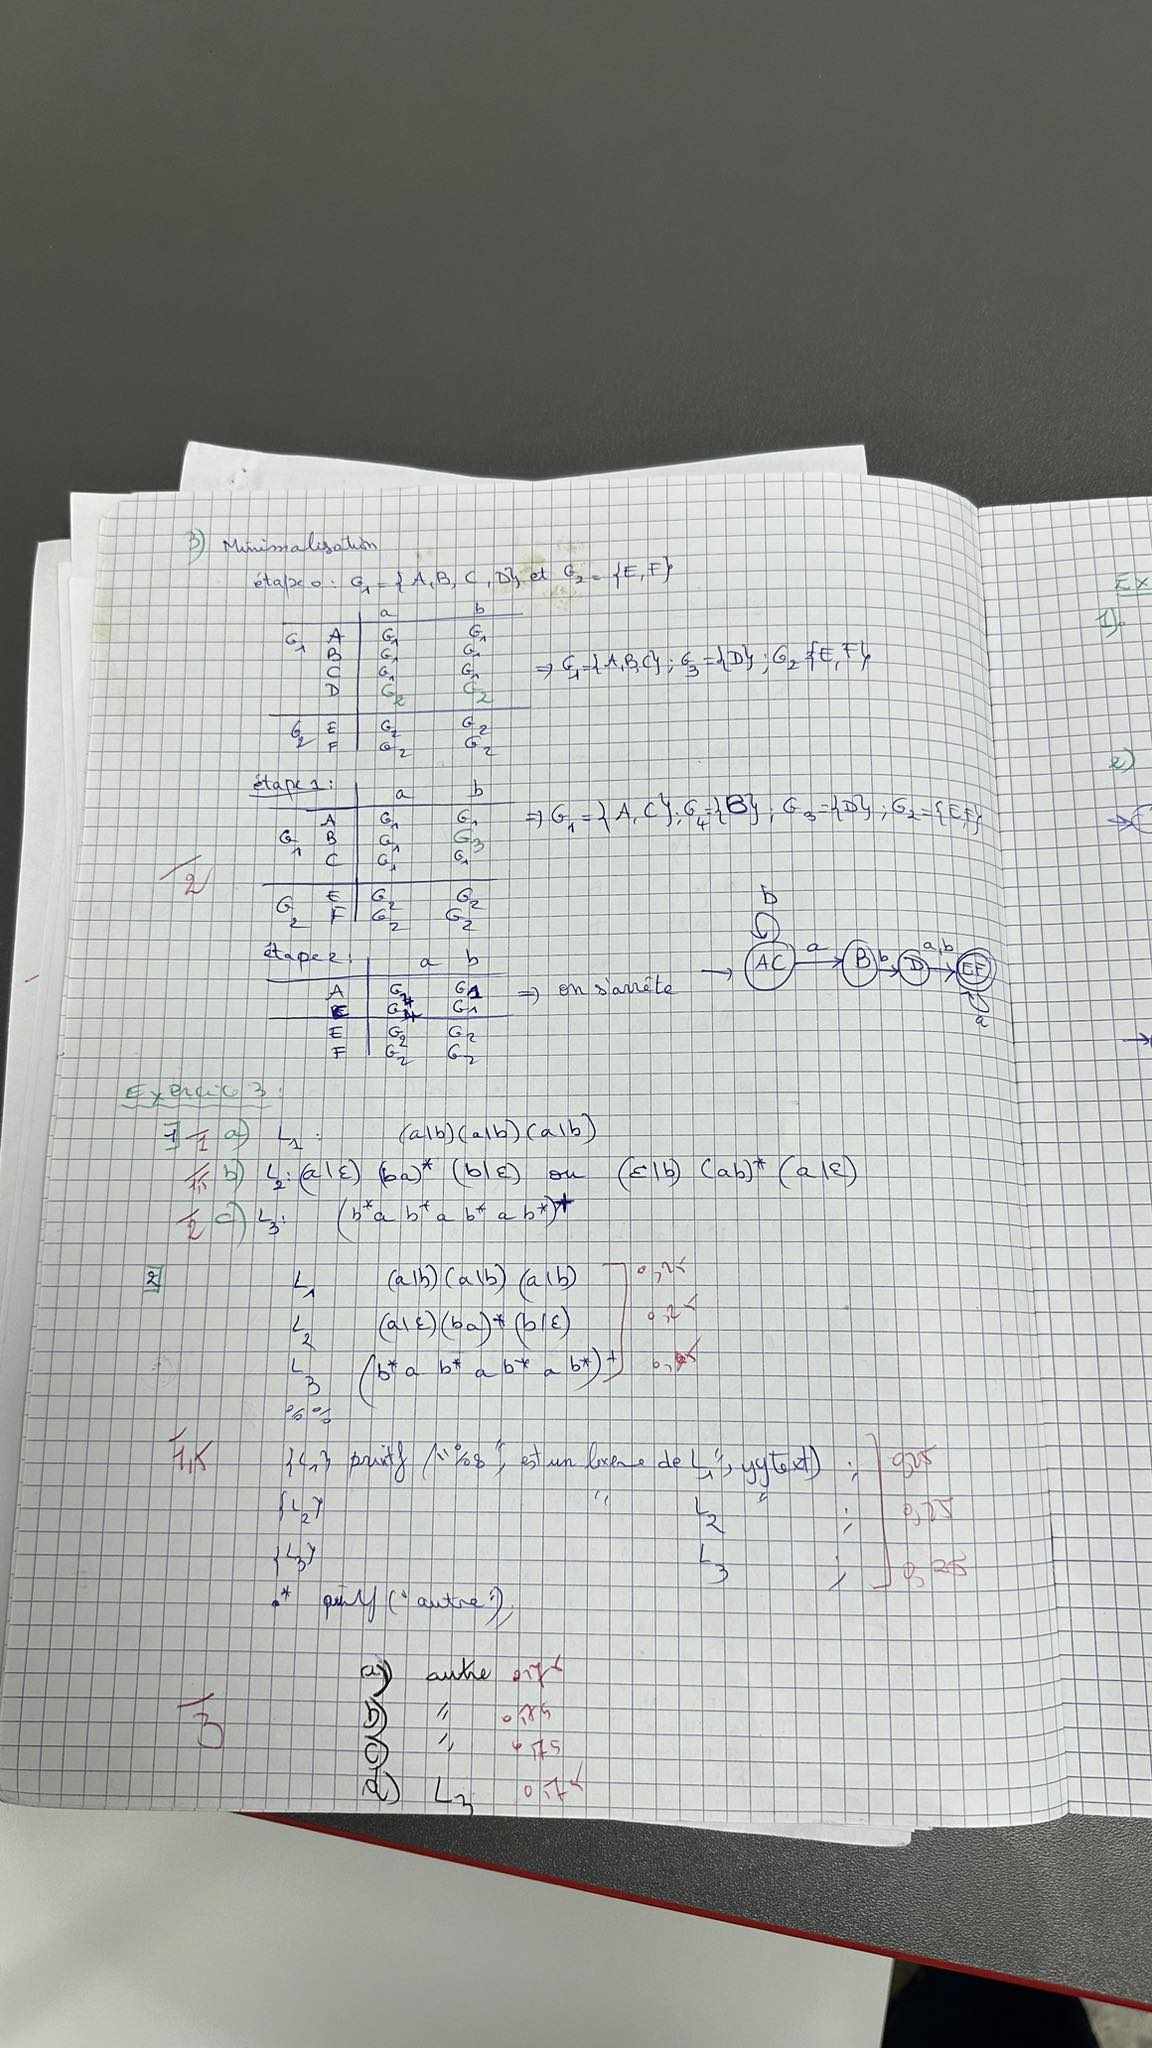 3) Minimalisation
étape 0 : G1 = {A, B, C, D} et G2 = {E, F}
a b
G1 A G1 G1
B G1 G1
C G1 G1
D G2 G2
=> G1 = {A,B,C} ; G3 = {D} ; G2 {E, F}
G2 E G2 G2
F G2 G2
étape 1 : a b
A G1 G1
G1 B G1 G3
C G1 G1
=> G1 = {A, C} ; G4 = {B} ; G3 = {D} ; G2 = {E,F}
/2
G2 E G2 G2
F G2 G2
étape 2 : a b
A G1
G1
E G2 G2
F G2 G2
=> on s'arrête
b
AC a B b D a,b EF
a
Exercice 3 :
1] /1 a) L1 : (a|b)(a|b)(a|b)
b) L2 : (a|ε) (ba)* (b|ε) ou (ε|b) (ab)* (a|ε)
/2 c) L3 : (b*a b* a b* a b*)+
2] L1 (a|b)(a|b)(a|b) 0,25
L2 (a|ε)(ba)*(b|ε) 0,25
L3 (b*a b* a b* a b*)+
%%
/1,5 {L1} printf ("%s", est un lexème de L1", yytext) ; 0,25
{L2} " L2 " ; 0,25
{L3} L3 ; 0,25
.* printf ("autre");
/3
a) autre 0,75
b) "
c) "
d) L3 0,75
Ex
1)
2)